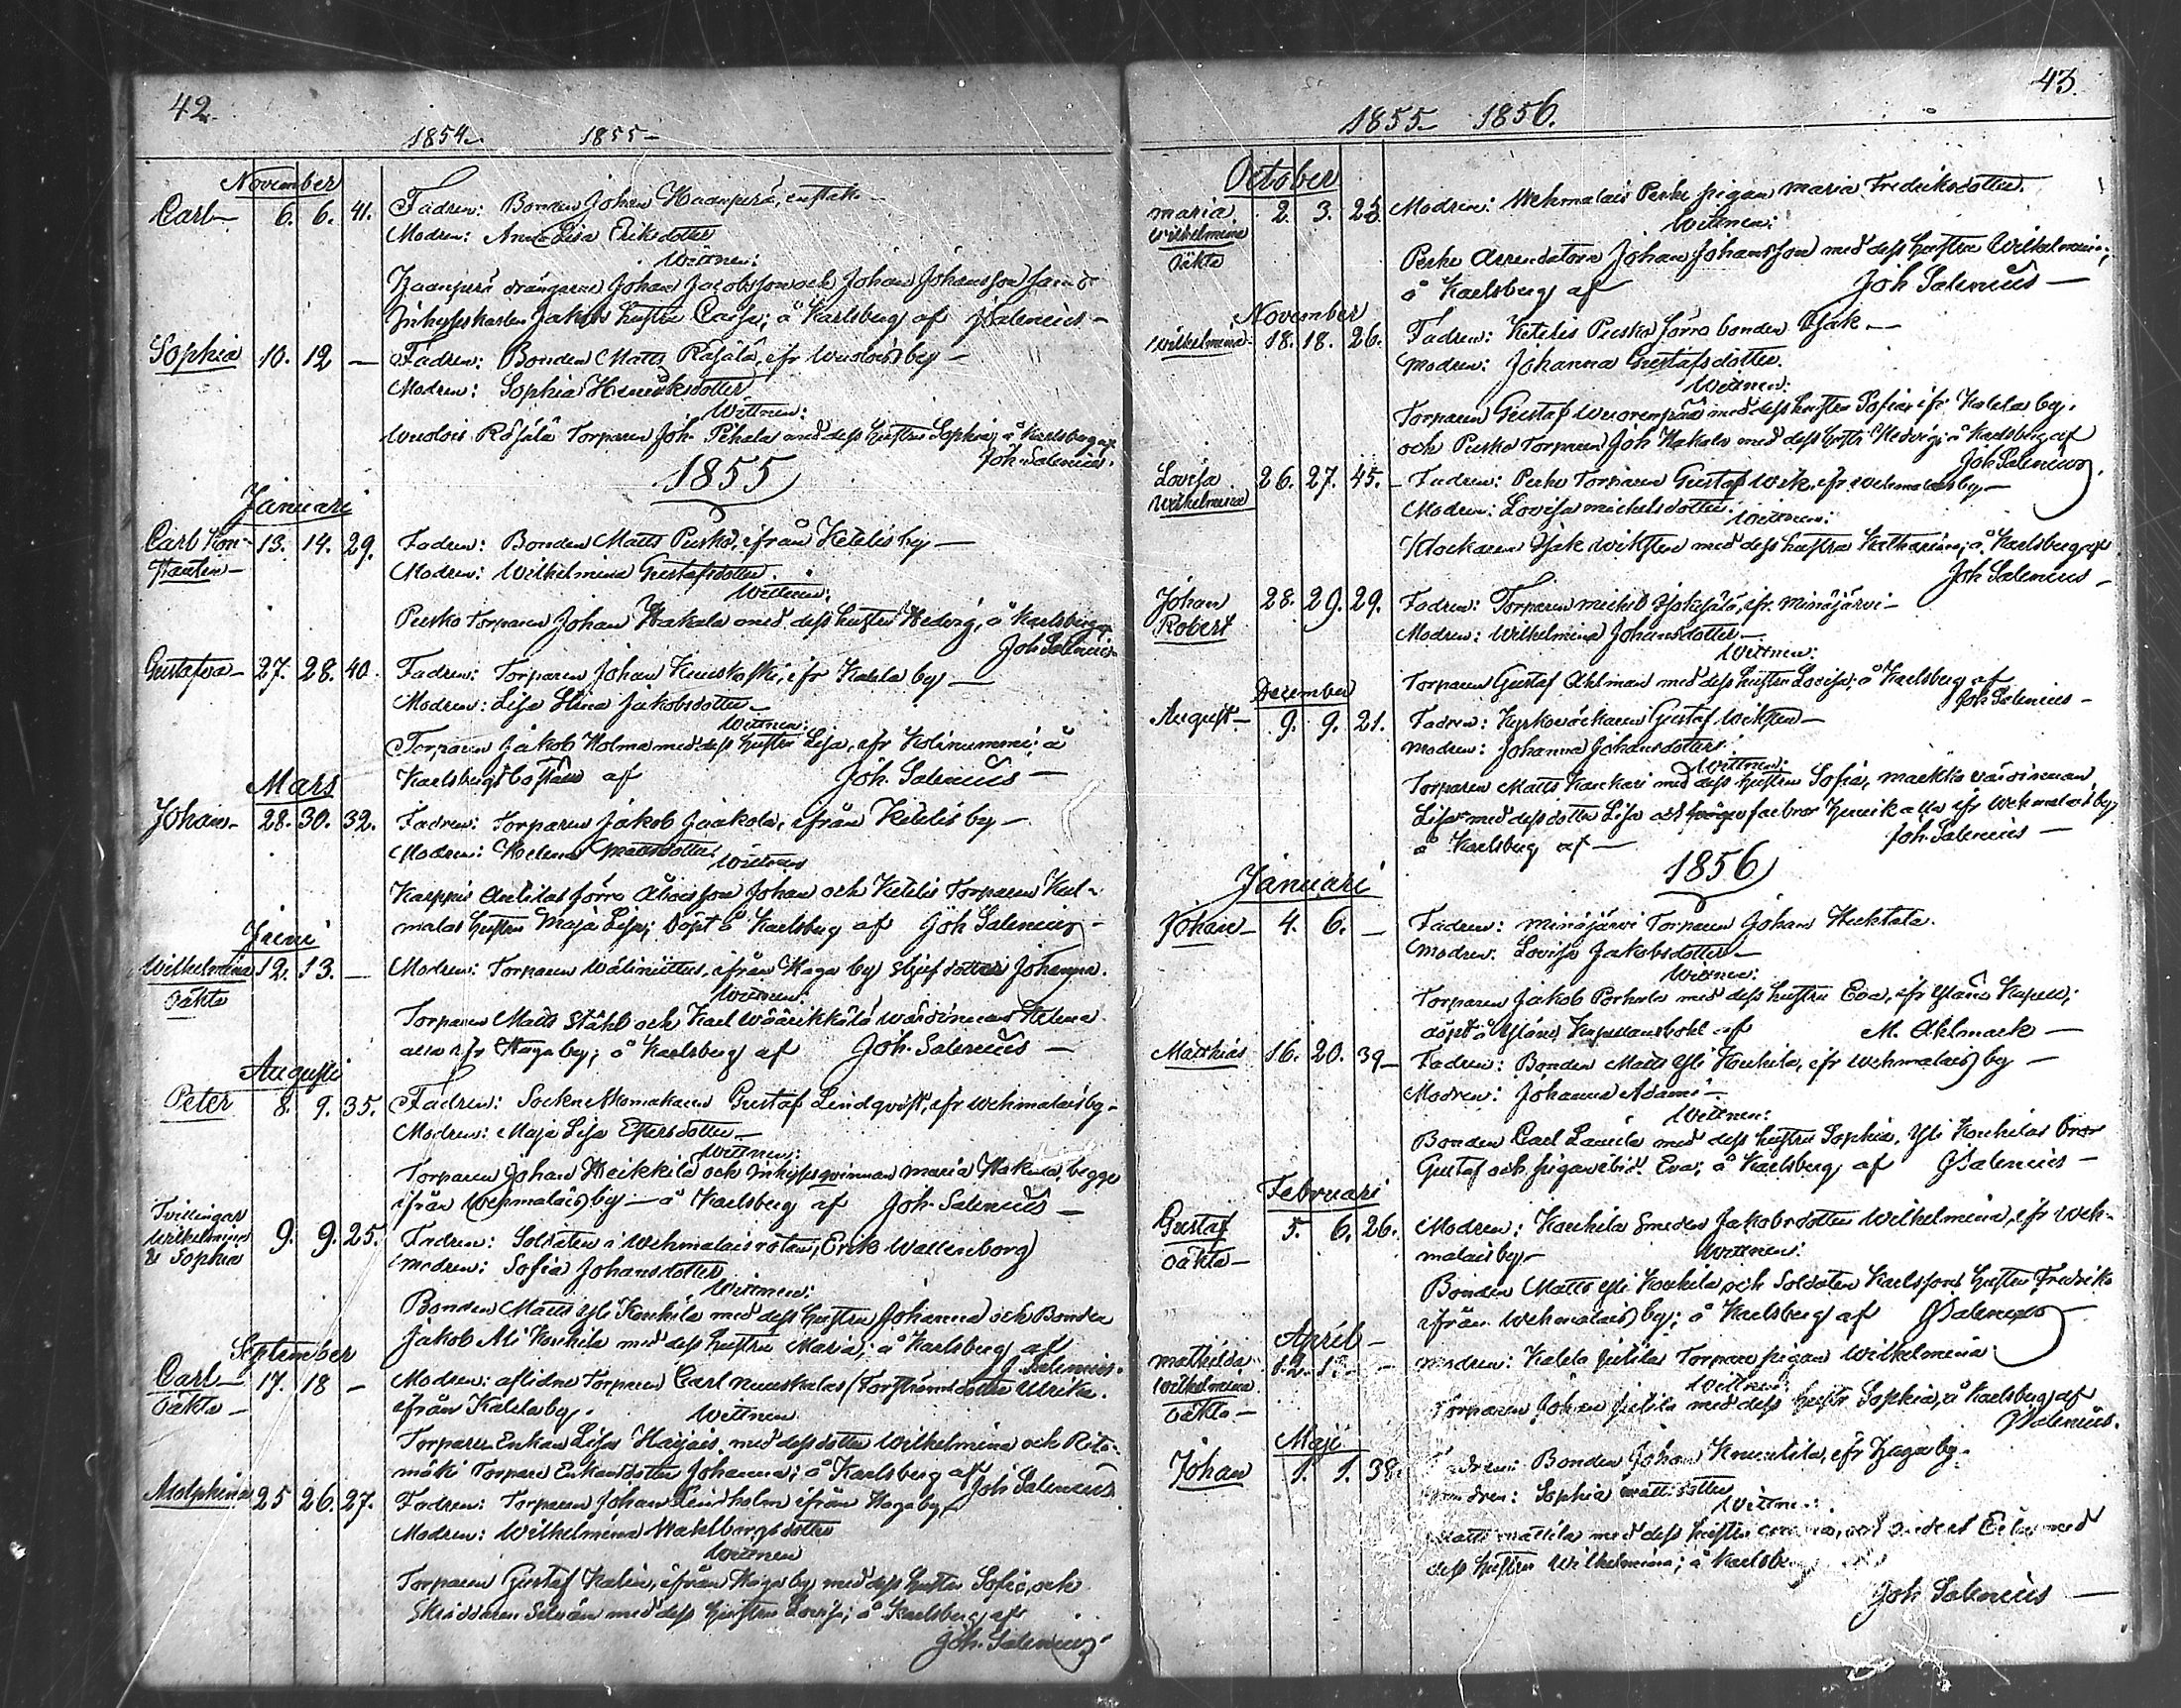 42.
1854. 1855 –
November
Carl – 6. 6. 41. Fadren: Bonden Johan
Modren: Anna Lisa Eriksdotter
Wittnen:
drängarne Johan Jacobsson och Johan Johansson samt
Jakobs hustru Caisa; å Karlsberg af JSalenius –
Sophia 10. 12 – Fadren: Bonden Matts Röjälä, ifr Wuolois by –
Modren: Sophia Henriksdotter
Wittnen:
Wuolois Röjälä Torparen Joh. Pihala med dess hustru Sophia; å Karlsberg af
Joh. Salenius.
1855
Januari
Carl Kon- 13. 14. 29. Fadren: Bonden Matts Pusko, ifrån Ketelis by –
stantin – Modren: Wilhelmina Gustafsdotter.
Wittnen:
Pusko Torparen Johan Hakala med dess hustru Hedvig, å Karlsberg af
Joh Salenius
Gustafva – 27. 28. 40. Fadren: Torparen Johan ifr Kalela by –
Modren: Lisa Stina Jakobsdotter –
Wittnen:
Torparen Jakob Holma med dess hustru Lisa, ifr Kolinummi; å
Karlsbergs af Joh. Salenius –
Mars
Johan – 28. 30. 32. Fadren: Torparen Jakob Jaakola, ifrån Ketelis by –
Modren: Helena Mattsdotter.
Wittnen
Karppis Anttilas förra Johan och Ketelis Torparen
malas hustru Maja Lisa; döpt å Karlsberg af Joh Salenius –
Juni
Wilhelmina 12. 13. – Modren: Torparen ifrån Haga by stjufdotter Johanna.
oäkta
Wittnen:
Torparen Matts Ståhl och Karl Helena
alla ifr Haga by; å Karlsberg af Joh. Salenius –
Augusti
Peter 8. 9. 35. Fadren: Sockneskomakaren Gustaf Lindqvist, ifr Wehmalais by –
Modren: Maja Lisa Estersdotter –
Wittnen:
Torparen Johan Heikkilä och Inhysesqvinnan Maria Hakala, begge
ifrån Wehmalais by – å Karlsberg af Joh. Salenius –
Tvillingar
Wilhelmina 9. 9. 25. Fadren: Soldaten i Wehmalais rotan, Erik Wallenborg
& Sophia Modren: Sofia Johansdotter
Wittnen:
Bonden Matts Yli Koukila med dess hustru Johanna och Bonden
Jakob Ali Koukila med dess hustru Maria; å Karlsberg af
J Salenius.
September
Carl – 17. 18 – Modren: aflidne Torparen Carl dotter Ulrika.
oäkta – ifrån Kalela by.
Wittnen
Torpare Enkan Lisa med dess dotter Wilhelmina och
mäki Torpare Enkans dotter Johanna; å Karlsberg af Joh Salenius
Adolphina 25 26. 27. Fadren: Torparen Johan Lindholm ifrån Haga by
Modren: Wilhelmina Wahlbergsdotter
Wittnen
Torparen Gustaf Kalin, ifrån Haga by med dess hustru Sofia, och
Skräddaren med dess hustru Lovisa; å Karlsberg af
Joh. Salenius
43.
1855 – 1856.
October
Maria 2. 3. 25. Modren: Wehmalais Perhe pigan Maria Fredriksdotter.
Wilhelmina
oäkta
Wittnen:
Perhe Arrendatorn Johan Johansson med dess hustru Wilhelmina;
å Karlsberg af Joh Salenius –
November
Wilhelmina – 18. 18. 26. Fadren: Ketelis Pusko förra bonden Isak –
Modren: Johanna Gustafsdotter.
Wittnen:
Torparen Gustaf Wuorenpää med dess hustru Sofia, ifr Kalela by.
och Pusko Torparen Joh Hakala med dess hustru Hedvig; å Karlsberg af
Joh Salenius.
Lovisa 26. 27. 45. – Fadren: Perhe Torparen Gustaf Wik, ifr Wehmalais by –
Wilhelmina Modren: Lovisa Michelsdotter.
Wittnen:
Klockaren Isak Wiksten med dess hustru Katharina; å Karlsberg af
Joh Salenius –
Johan 28. 29. 29. Fadren: Torparen Michel ifr. Minäjärvi –
Robert Modren: Wilhelmina Johansdotter –
Wittnen:
Torparen Gustaf Ahlman med dess hustru Lovisa; å Karlsberg af
Joh Salenius –
December
August – 9. 9. 21. Fadren: Kyrkoväktaren Gustaf Wiksten –
Modren: Johanna Johansdotter.
Wittnen:
Torparen Matts Kankari med dess hustru Sofia,
Lisa med dess dotter Lisa och farbror Henrik alla ifr Wehmalais by
å Karlsberg af – Joh. Salenius –
1856
Januari
Johan – 4. 6. – Fadren: Minäjärvi Torparen Johan Huhtala.
Modren: Lovisa Jakobsdotter –
Wittnen:
Torparen Jakob Porhola med dess hustru Eva, ifr Yläne Kapell;
döpt å Yläne Kapellansbohl af M. Ahlmark –
Matthias 16. 20. 39 – Fadren: Bonden Matts Yli Koukila, ifr Wehmalais by –
Modren: Johanna Adami –
Wittnen:
Bonden Carl Laurila med dess hustru Sophia, Yli Koukilas bror
Gustaf och pigan ibid. Eva; å Karlsberg af JSalenius –
Februari
Gustaf 5. 6. 26. Modren: Koukila Smeden Jakobs dotter Wilhelmina, ifr Weh-
oäkta – malais by –
Wittnen:
Bonden Matts Yli Koukila, och Soldaten Karlssons hustru Fredrika
ifrån Wehmalais by; å Karlsberg af JSalenius
April –
Mathilda 12. – Modren: Kalela Torpare pigan Wilhelmina
Wilhelmina
oäkta –
Wittnen:
Torparen Johan med dess hustru Sophia, å Karlsberg af
JSalenius.
Maji
Johan 1. 1. 38. Fadren: Bonden Johan ifr Haga by –
Modren: Sophia Mattsdotter
Wittnen:
Matts Mattila med dess hustru med
dess hustru Wilhelmina; å Karlsberg
Joh Salenius –